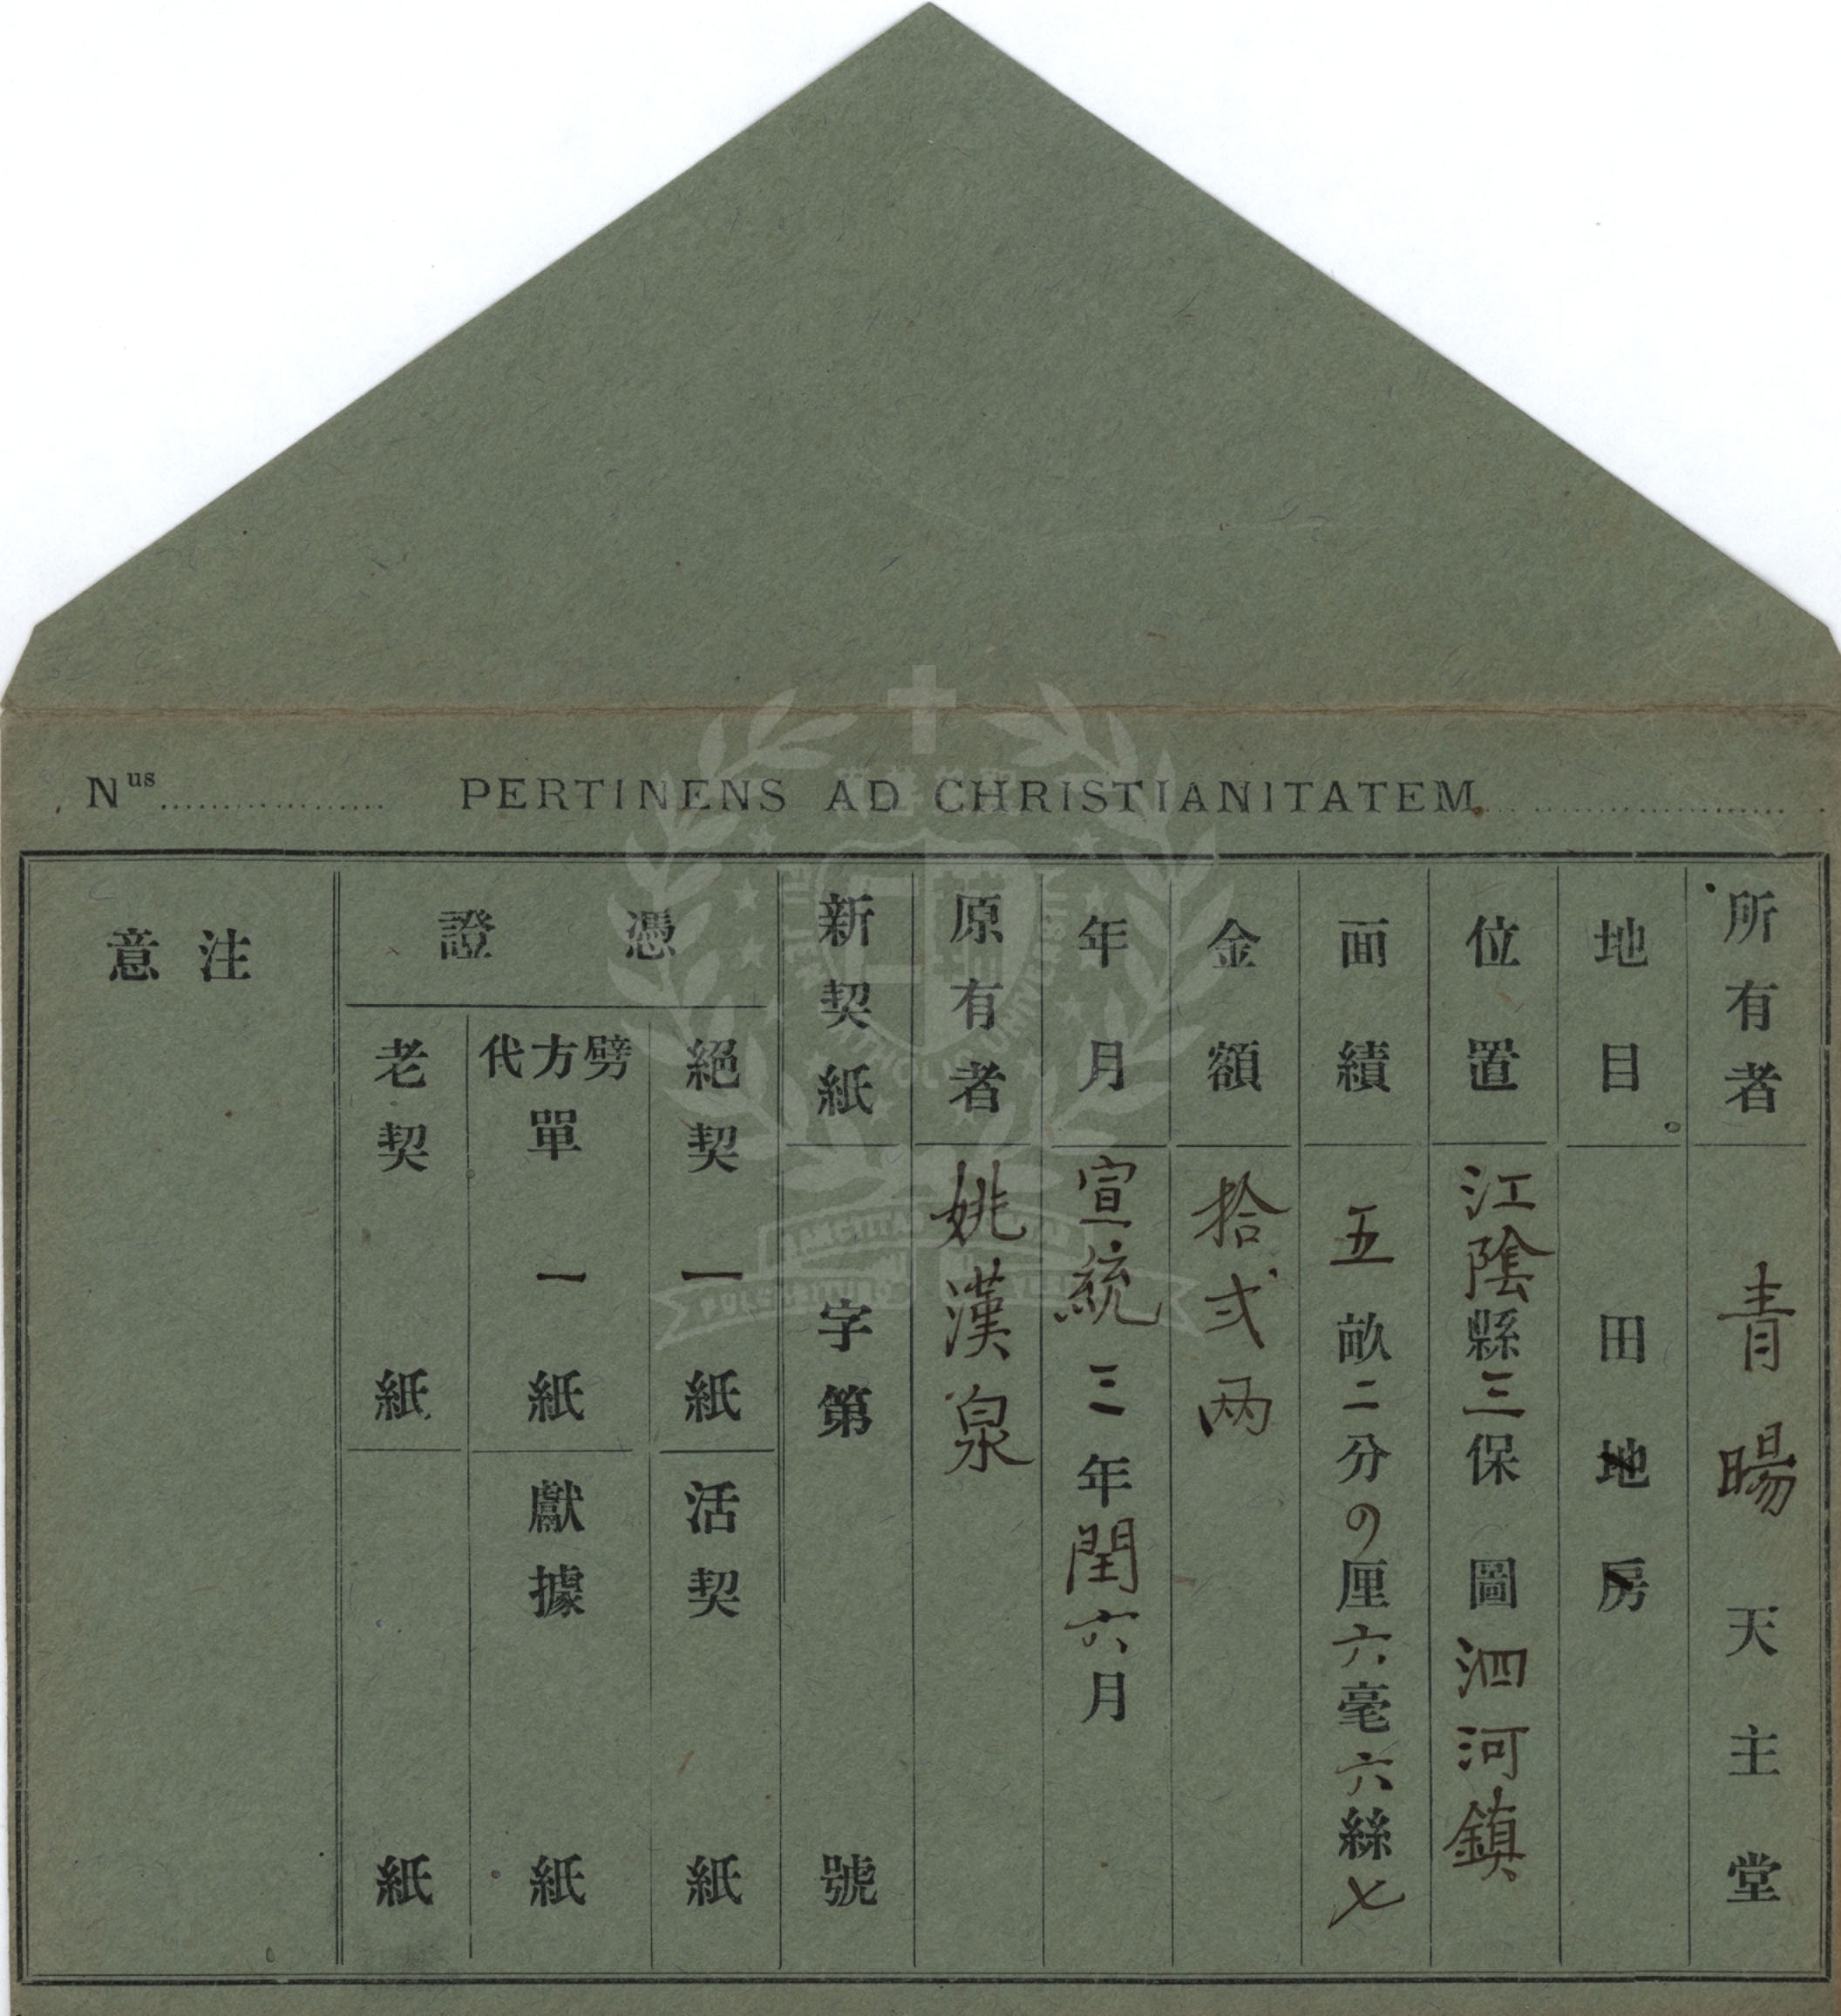 Nus PERTINENS AD CHRISTIANITATEM
所有者 青暘天主堂
地目 田地房
位置 江陰縣三保圖泗河鎮
面績 五畝二分の厘六毫六絲七
金額 拾弍两
年月 宣統三年閏六月
原有者 姚漢泉
新契紙 字第 號
憑證
絕契 一紙
活契 紙
劈方代單 一紙
獻據 紙
老契 紙
紙
注意